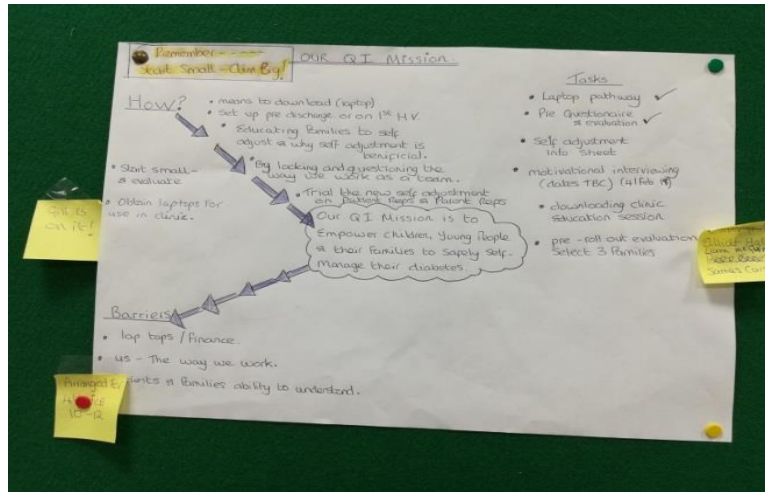 Remember - - - - -
Start Small - Claim Big!
OUR QI Mission.
How?
• means to download (laptop)
• Set up pre discharge or on 1st HV.
• Educating Families to self
adjust & why self adjustment is
benificial.
• By looking and questioning the
way we work as a team.
• Trial the new self adjustment
on Patient Reps & Parent Reps
• Start small -
& evaluate
• Obtain laptops for
use in clinic.
on it!
Our QI Mission is to
Empower children, Young People
& their Families to Safely Self-
Manage their diabetes.
Barriers
• lap tops / finance
• us - The way we work.
• & Families ability to understand.
Arranged
10-12
Tasks
• Laptop pathway ✓
• Pre Questionaire
& evaluation ✓
• Self adjustment
info sheet
• motivational interviewing
(dates TBC)
• downloading clinic
Education session
• pre - roll out evaluation
Select 3 Families